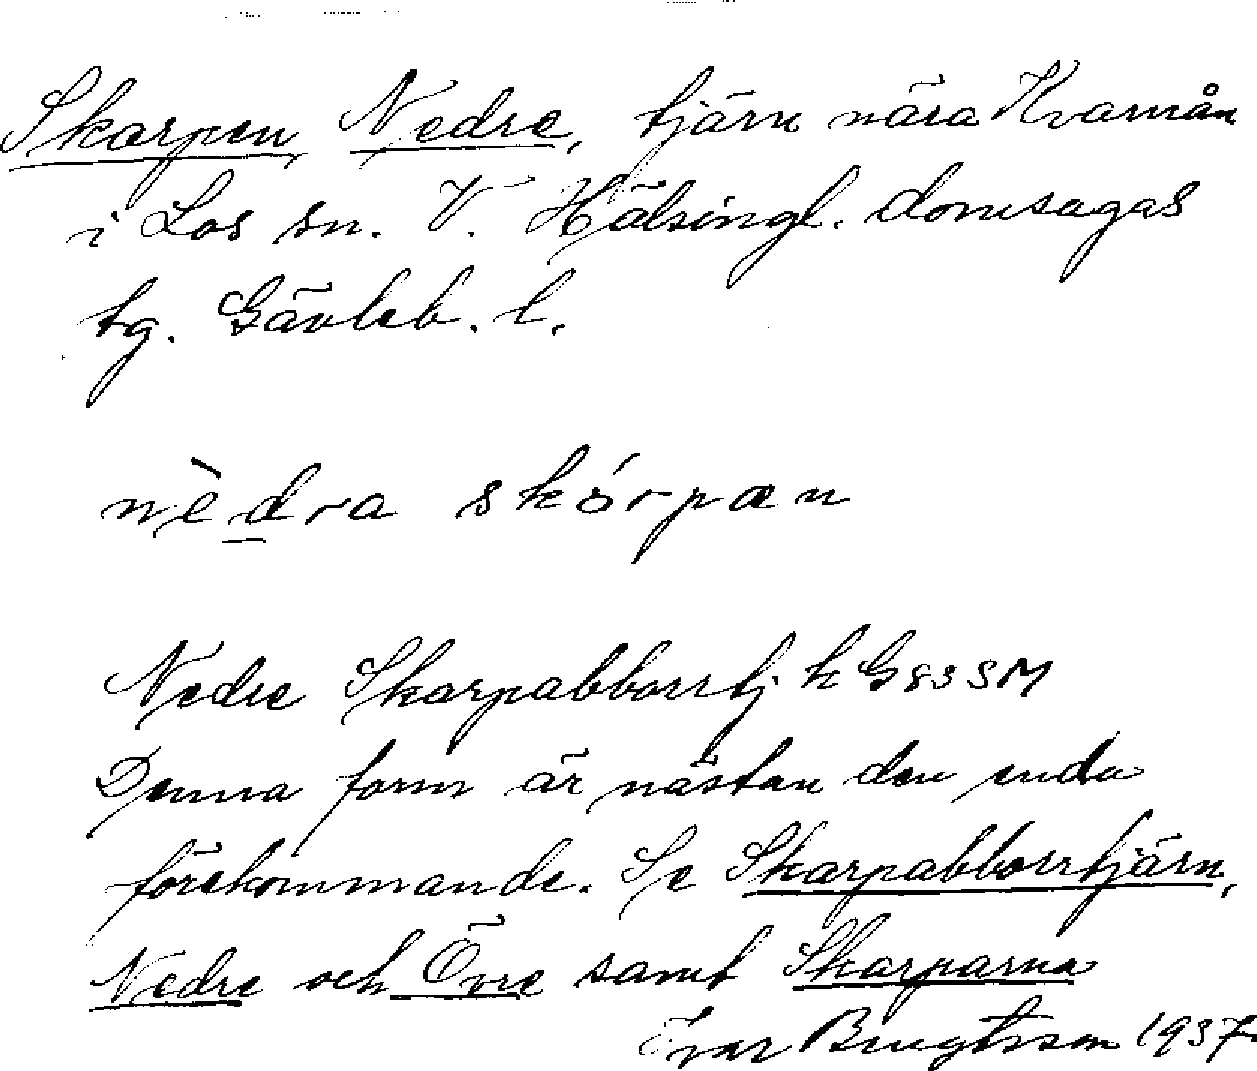 Skarpen, Nedre, tjärn nära Kvarnån
i Los sn. V. Hälsingl. domsagas
tg. Gävleb. l.
nèdra skórpæn
Nedre Skarpabborrtj k G 83 SM
Denna form är nästan den enda
förekommande. Se Skarpabborrtjärn,
Nedre och Övre samt Skarparna
Ivar Bengtsson 1937